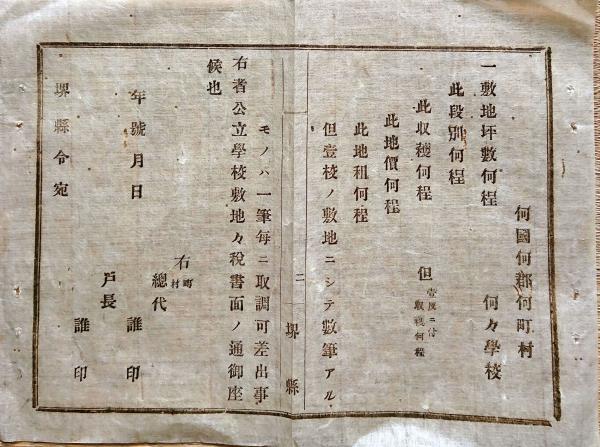 何國何郡何町村
何々學校
一敷地坪數何程
此段別何程
此收穫何程
但
壹反ニ付
收穫何程
此地價何程
此地租何程
但壹校ノ敷地ニシテ數筆アル
二
堺縣
モノハ一筆每ニ取調可差出事
右者公立學校敷地々稅書面ノ通御座
候也
右
町
村
總代
誰印
年號月日
戶長
誰印
堺縣令宛